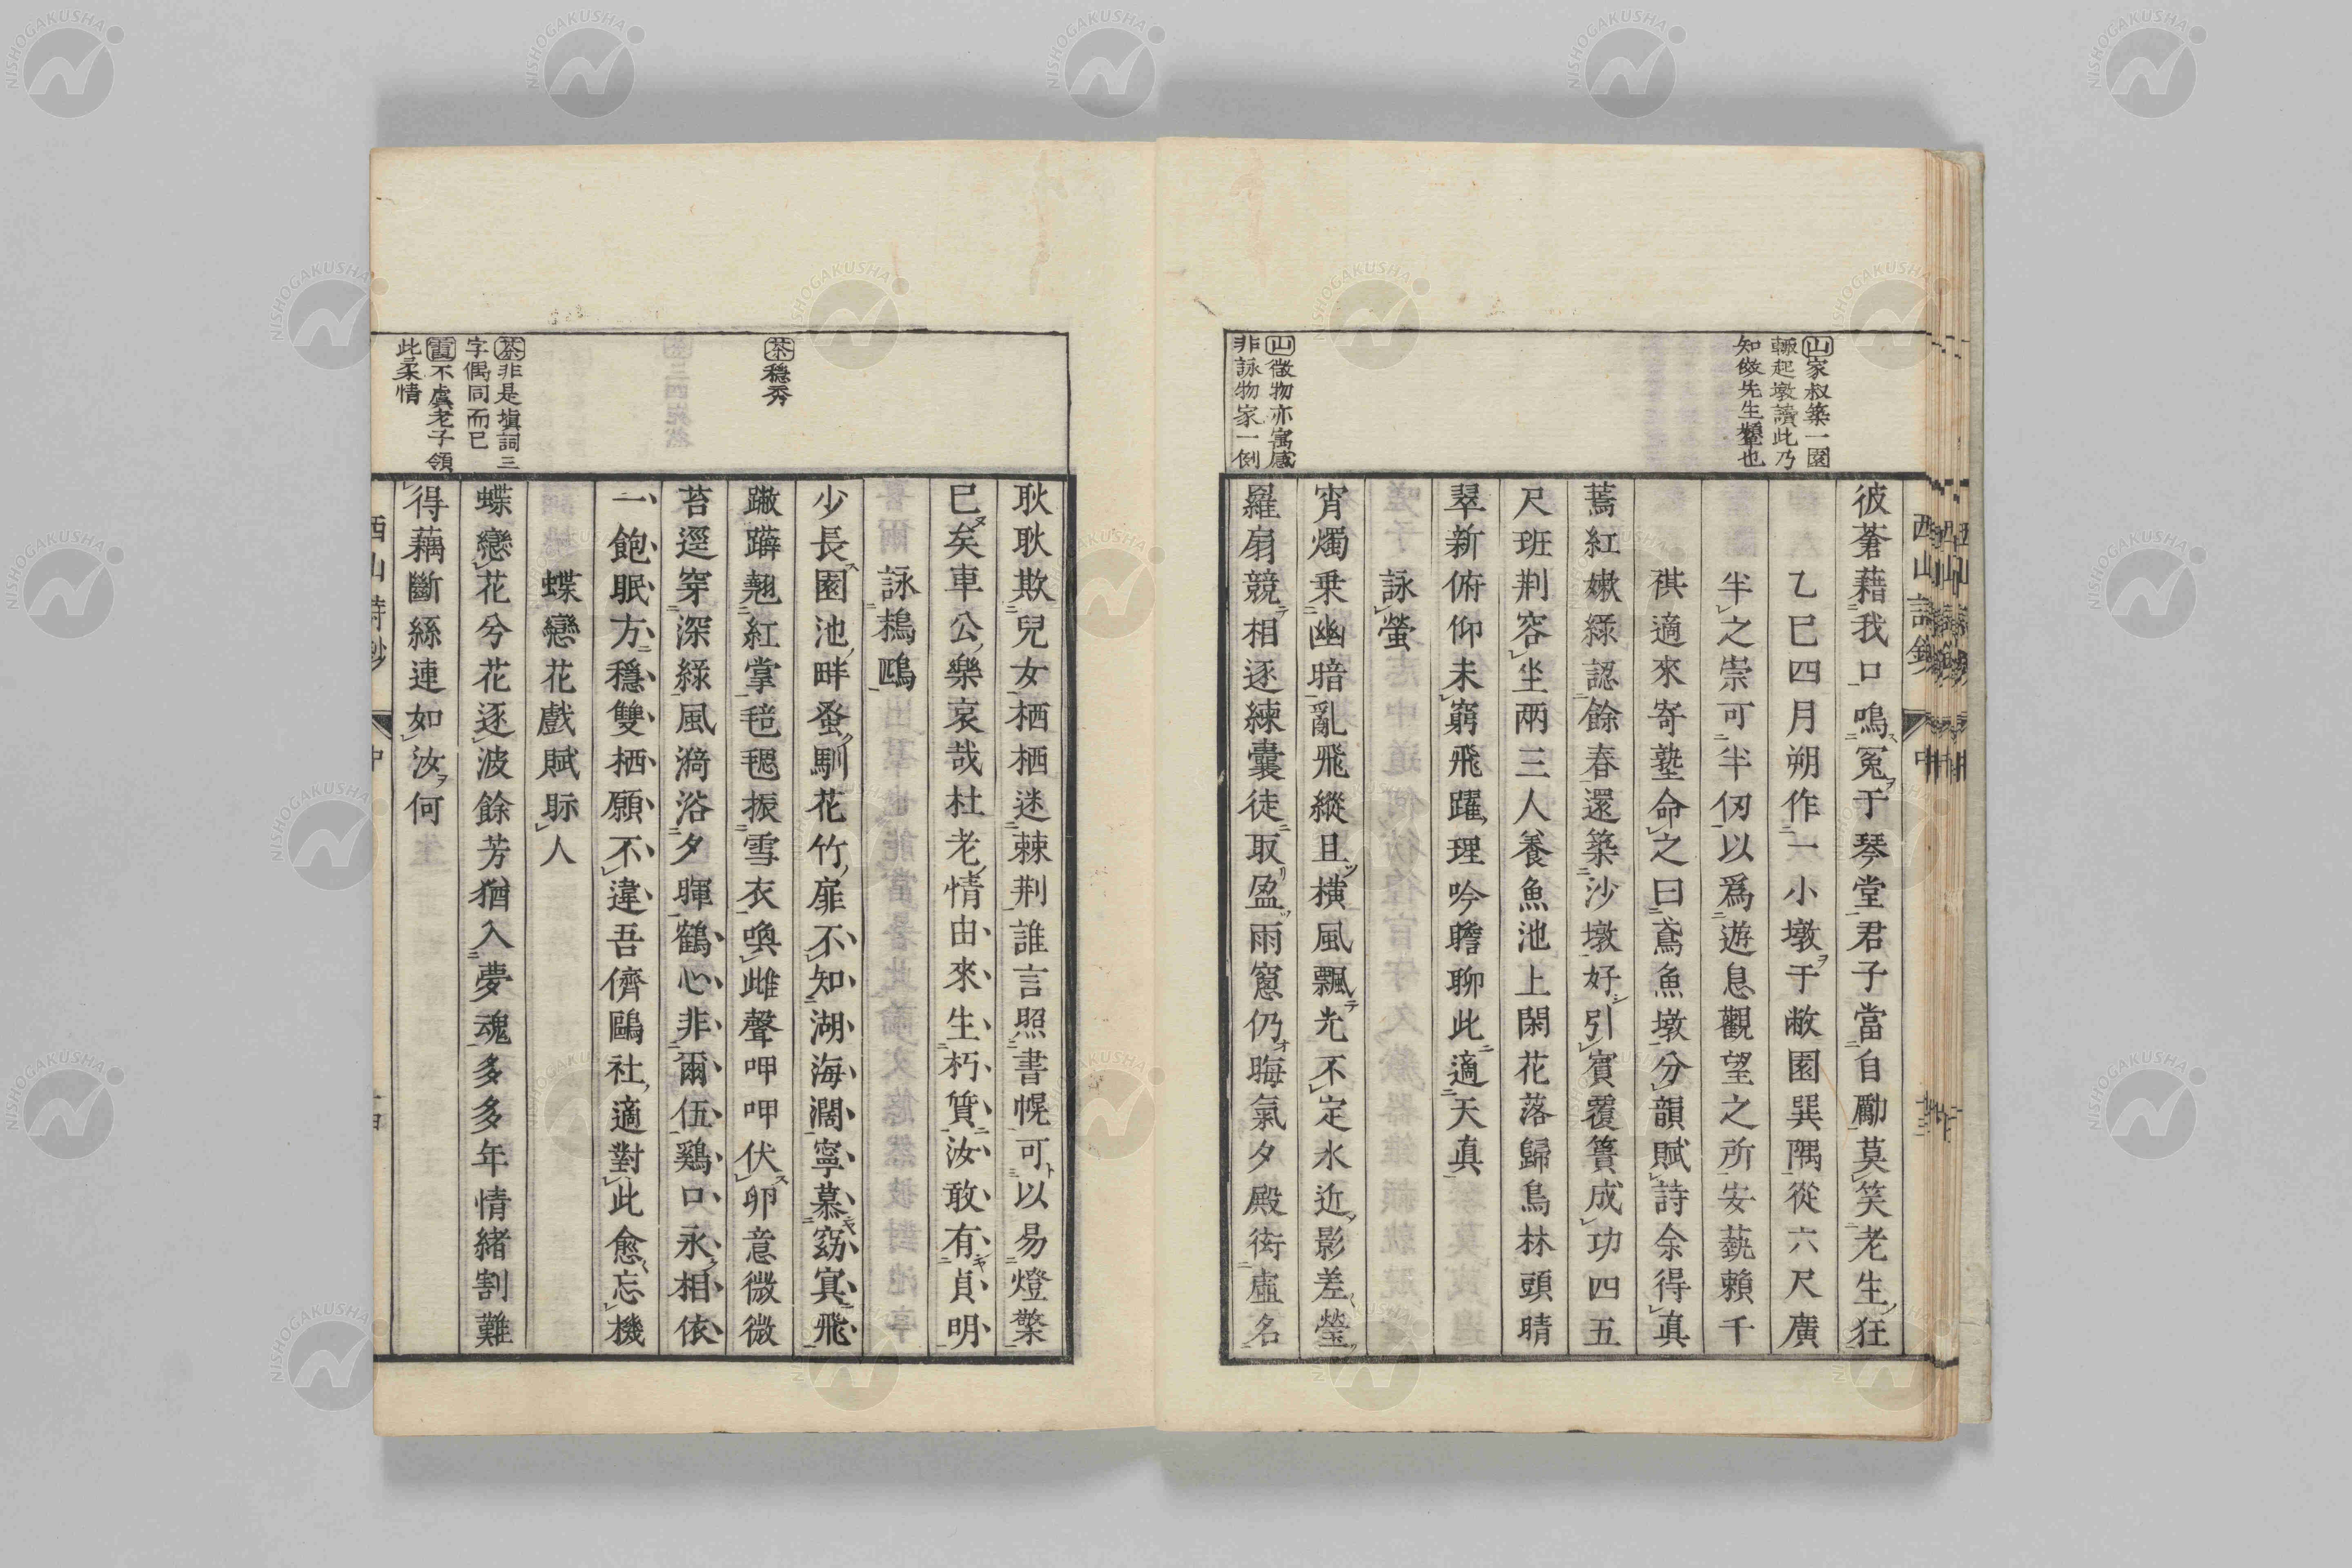 山家叔築一園
輙起墩讀此乃
知倣先生顰也
山微物亦寓感
非詠物家一例
彼蒼藉我口鳴冤于琴堂君子當自勵莫笑老生狂
乙巳四月朔作一小墩于敝園巽隅從六尺廣
半之崇可半仞以爲遊息觀望之所安藝賴千
祺適來寄塾命之曰鳶魚墩分韻賦詩余得真
蔫紅嫩綠認餘春還築沙墩好引賓覆簣成功四五
尺班荆容坐兩三人養魚池上閑花落歸鳥林頭晴
翠新俯仰未窮飛躍理吟瞻聊此適天真
詠螢
宵燭乗幽暗亂飛縱且橫風飄光不定水近影差瑩
羅扇競相逐練囊徒取盈雨窻仍晦氣夕殿衒虛名
西山詩鈔
中
茶穏秀
茶非是塡詞三
字偶同而已
霞不虞老子領
此柔情
耿耿欺兒女栖栖迷棘荆誰言照書幌可以易燈檠
已矣車公樂哀哉杜老情由來生朽質汝敢有貞明
詠鵁鶄
少長園池畔蚤馴花竹扉不知湖海濶寧慕窈冥飛
蹣躃翹紅掌毰毸振雪衣喚雌聲呷呷伏卵意微微
苔逕穿深綠風漪浴夕暉鶴心非爾伍鷄口永相依
一飽眠方穩雙栖願不違吾儕鷗社適對此愈忘機
蝶戀花戲賦眎人
蝶戀花兮花逐波餘芳猶入夢魂多多年情緒割難
得藕斷絲連如汝何
西山詩鈔
中